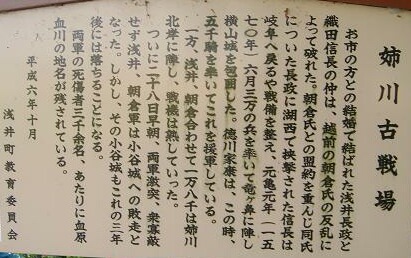 姉川古戦場
お市の方との結婚で結ばれた浅井長政と
織田信長の仲は、越前の朝倉氏の反乱に
よって破れた。朝倉氏との盟約を重んじ同氏
についた長政に湖西で挟撃された信長は
岐阜へ戻るや戦備を整え、元亀元年(一五
七〇年)六月三万の兵を率いて竜ヶ鼻に陣し
横山城を包囲した。徳川家康は、この時、
五千騎を率いてこれを援軍している。
一方、浅井、朝倉合わせて一万八千は姉川
北岸に陣し、戦機は熟していった。
ついに二十八日早朝、両軍激突、衆寡敵
せず浅井、朝倉軍は小谷城への敗走と
なった。しかし、その小谷城もこれの三年
後には落ちることになる。
両軍の死傷者三千余名、あたりに血原
血川の地名が残されている。
平成六年十月
浅井町教育委員会